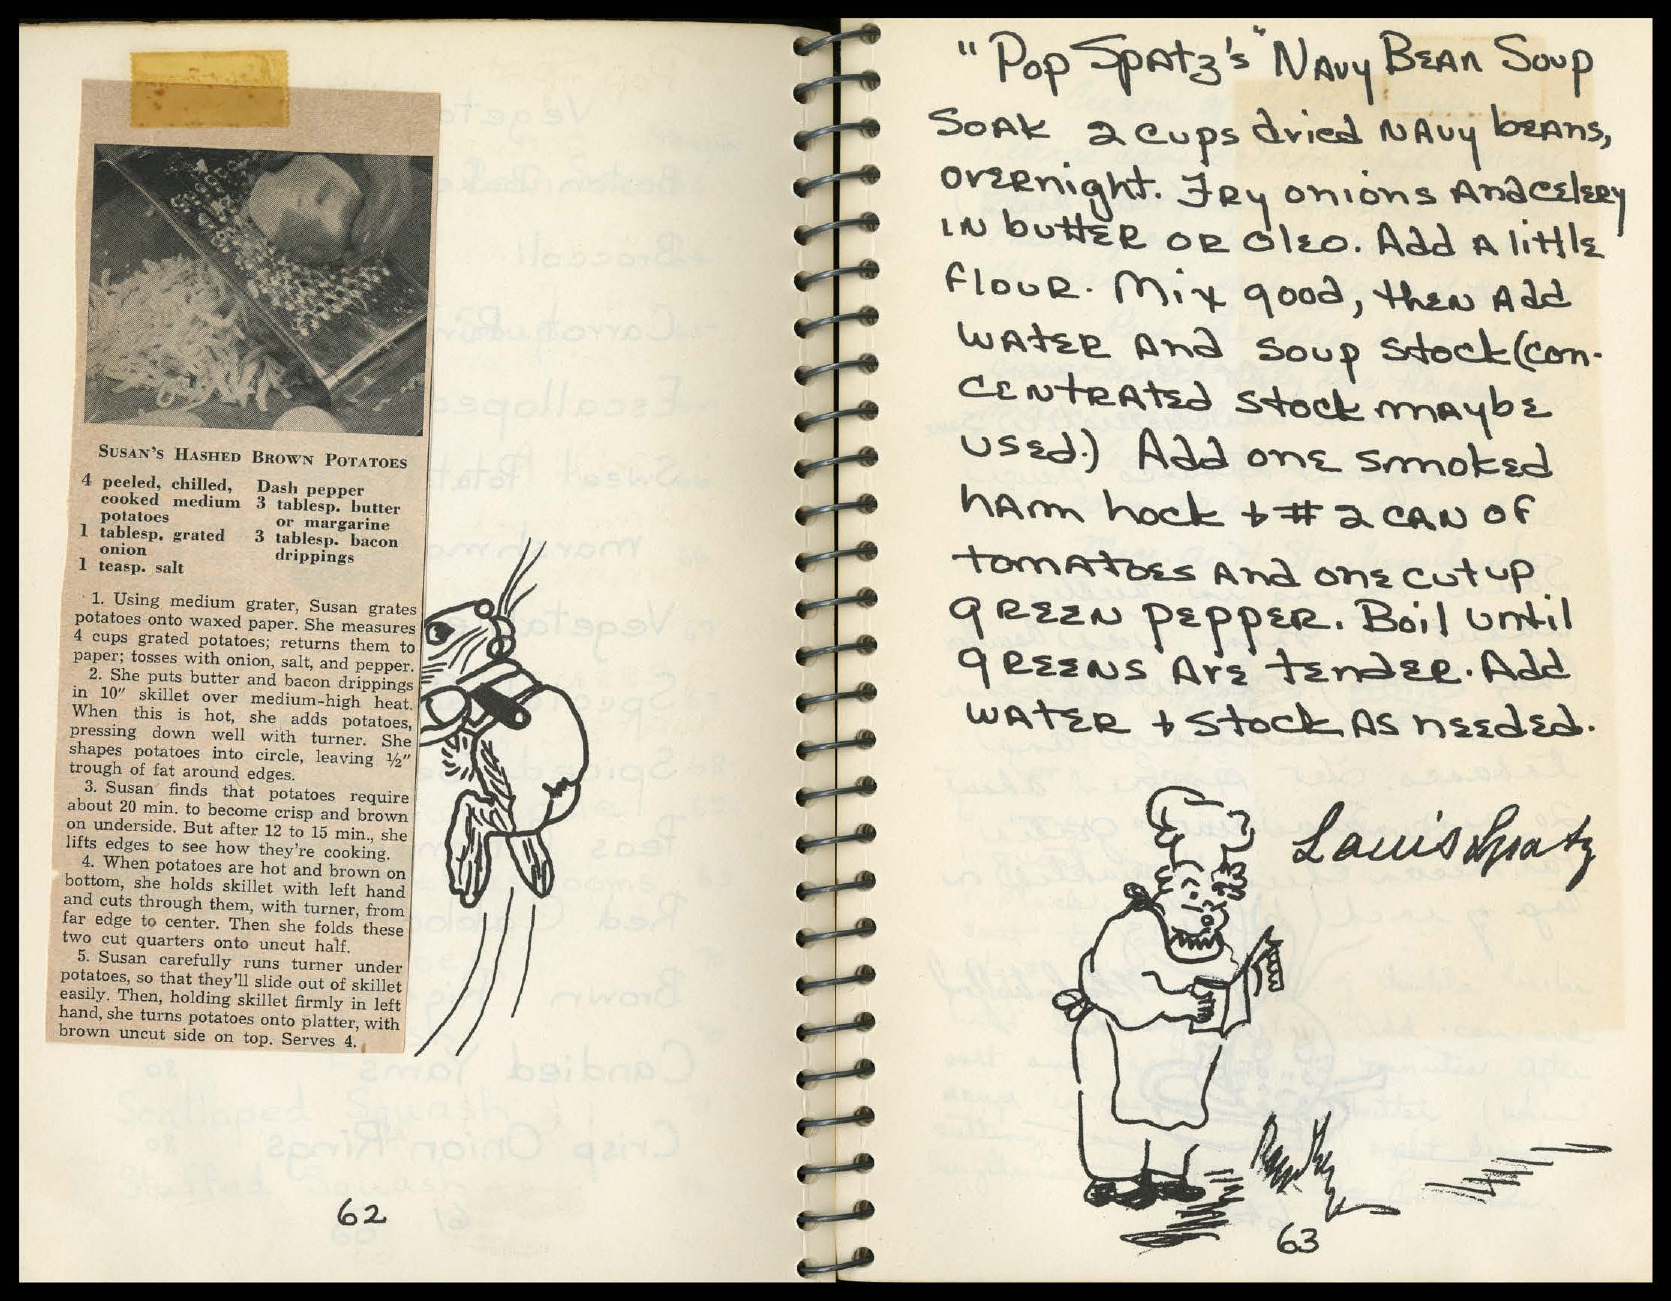 SUSAN'S HASHED BROWN POTATOES
4 peeled, chilled,
cooked medium
potatoes
1 tablesp. grated
onion
1 teasp. salt
Dash pepper
3 tablesp. butter
or margarine
3 tablesp. bacon
drippings
1. Using medium grater, Susan grates
potatoes onto waxed paper. She measures
4 cups grated potatoes; returns them to
paper; tosses with onion, salt, and pepper.
2. She puts butter and bacon drippings
in 10" skillet over medium-high heat.
When this is hot, she adds potatoes,
pressing down well with turner. She
shapes potatoes into circle, leaving ½"
trough of fat around edges.
3. Susan finds that potatoes require
about 20 min. to become crisp and brown
on underside. But after 12 to 15 min., she
lifts edges to see how they're cooking.
4. When potatoes are hot and brown on
bottom, she holds skillet with left hand
and cuts through them, with turner, from
far edge to center. Then she folds these
two cut quarters onto uncut half.
5. Susan carefully runs turner under
potatoes, so that they'll slide out of skillet
easily. Then, holding skillet firmly in left
hand, she turns potatoes onto platter, with
brown uncut side on top. Serves 4.
62
"Pop Spatz's" Navy Bean Soup
Soak 2 cups dried navy beans,
overnight. Fry onions and celery
in butter or oleo. Add a little
flour. Mix good, then add
water and soup stock (con-
centrated stock maybe
used.) Add one smoked
ham hock + # 2 can of
tomatoes and one cut up
green pepper. Boil until
greens are tender. Add
water + stock as needed.
Louis Spatz
63